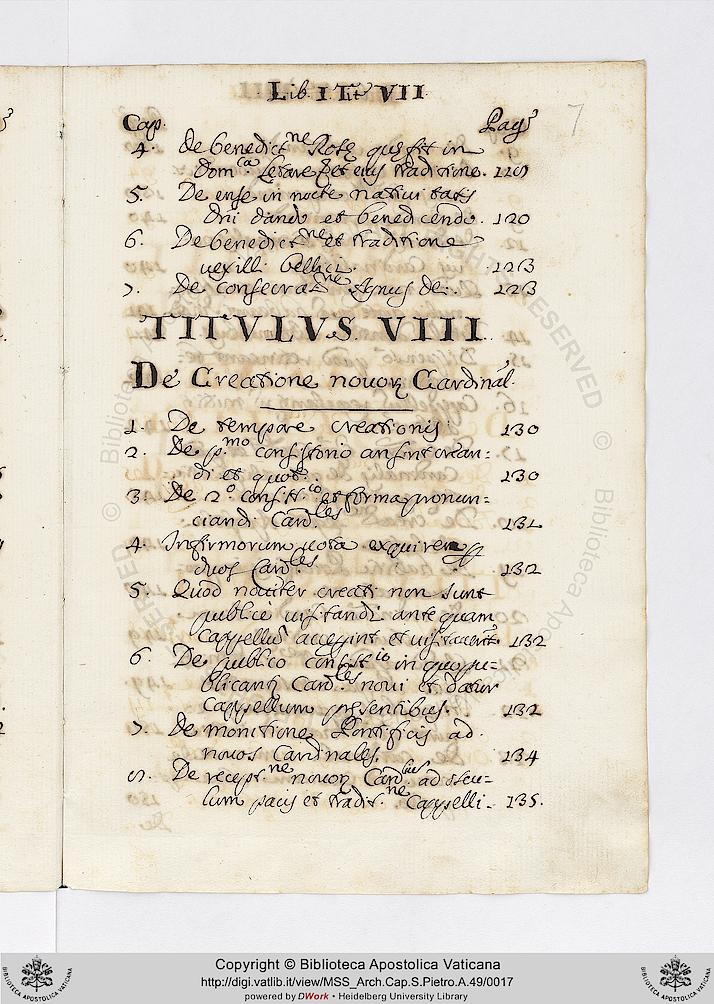 Lib. I. Tit. VII.
7
Cap. Pag.
4. De benedict.ne Rosę quę fit in
Dom.ca Letare et eius traditione. 119
5. De ense in nocte nativitatis
Dni dando et benedicendo. 120
6. De benedict.ne et traditione
uexilli bellici. 123
7. De consecrat.ne Agnus dei. 123
TITVLVS VIII.
De Creatione novorꝝ Cardinal.
1. De tempore creationis 130
2. De p.mo consistorio an sint crean-
di et quot. 130
3. De 2.o consist.io et forma pronun=
ciandi Card.les 131
4. Infirmorum uota exquirere
duos Card.les 132
5. Quod noviter creati non sunt
publicè uisitandi antequam
Cappellũ acceperint et uisitaverint. 132
6. De publico consist.io in quo pu=
blicantꝫ Card.les novi et datur
Cappellum presentibus. 132
7. De monitione Pontificis ad
novos Cardinales. 134
8. De recept.ne novorꝝ Card.lium ad oscu=
lum pacis et tradit.ne Cappelli. 135.
Copyright © Biblioteca Apostolica Vaticana
http://digi.vatlib.it/view/MSS_Arch.Cap.S.Pietro.A.49/0017
powered by DWork • Heidelberg University Library